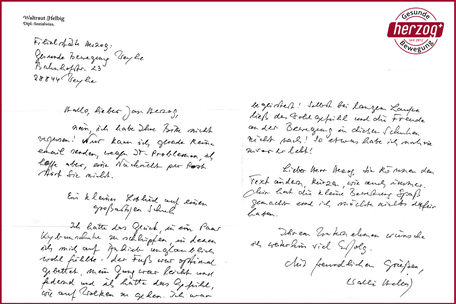 Waltraut Helbig
Dipl.-Sozialwiss.
Gesunde
herzog
Bewegung
Filialrätin Herzog:
Gesunde Bewegung Weyhe
Bahnhofstr. 23
28844 Weyhe
Hallo, lieber Jan Herzog,
nein, ich habe Ihre Bitte nicht
vergessen! Nur kann ich gerade keine
email senden, wegen IT-Problemen, ich
hoffe aber, eine Nachricht per Post
stört Sie nicht.
Ein kleines Loblied auf einen
großartigen Schuh
Ich hatte das Glück, in ein Paar
Kybunschuhe zu schlüpfen, in denen
ich mich auf Anhieb unglaublich
wohl fühlte. Der Fuß war optimal
gebettet, mein Gang war leicht und
federnd und ich hatte das Gefühl,
wie auf Wolken zu gehen. Ich war
begeistert! Selbst bei langem Laufen
ließ das Wohlgefühl und die Freude
an der Bewegung in diesen Schuhen
nicht nach! So etwas habe ich noch nie
zuvor erlebt!
Lieber Herr Herzog, Sie können den
Text ändern, kürzen, wie auch immer.
Mir hat die kleine Bewertung Spaß
gemacht und ich möchte nichts dafür
haben.
Ihrem Unternehmen wünsche
ich weiterhin viel Erfolg.
Mit freundlichen Grüßen,